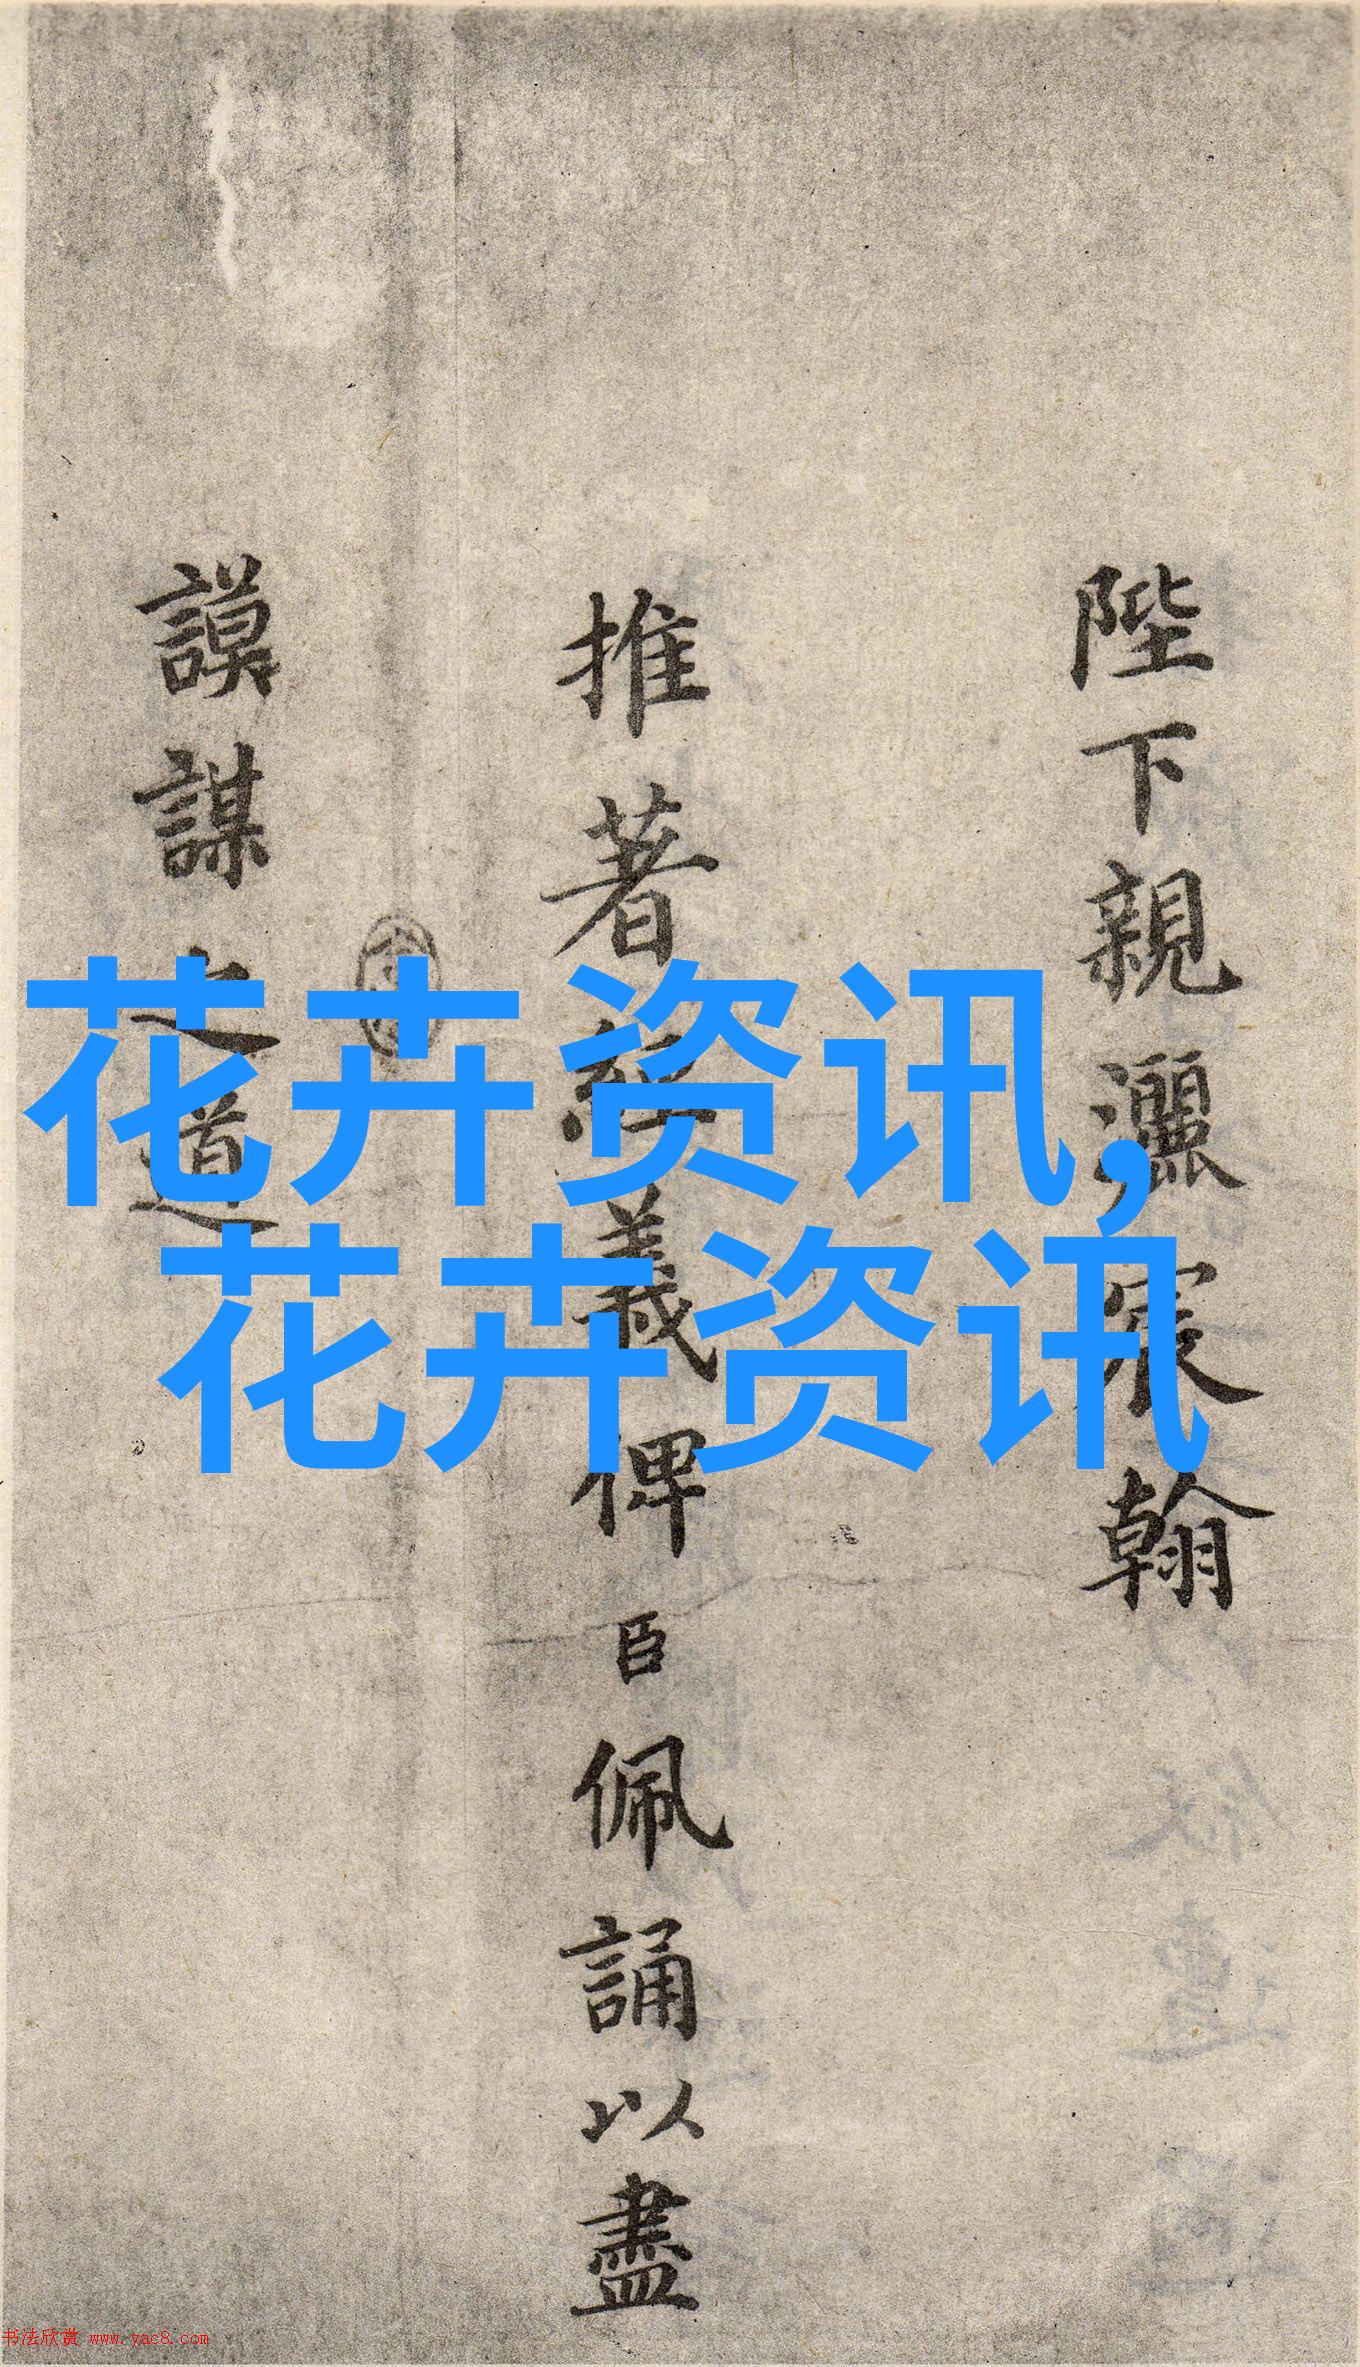 陛下親灑宸翰
推著經義俾臣佩誦以盡
謨謀之道
花卉资讯,
花卉资讯
书法欣赏 www.yac8.com